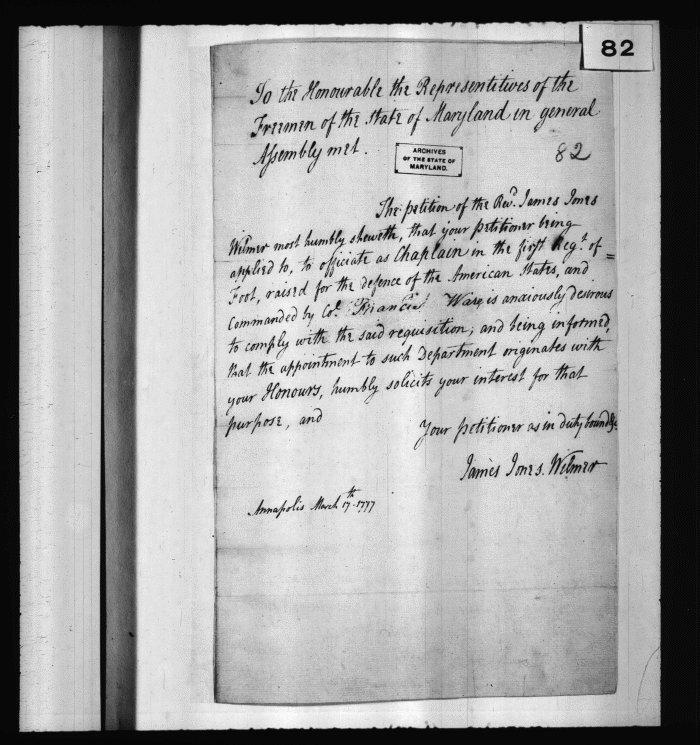 82
To the Honourable the Representitives of the
Freemen of the State of Maryland in general
Assembly met.
ARCHIVES
OF THE STATE OF
MARYLAND.
82
The petition of the Revd. James Jones
Wilmer most humbly sheweth, that your petitioner being
applied to, to officiate as Chaplain in the first Regt. of =
Foot, raised for the defence of the American States, and
commanded by Col. Francis Ware, is anxiously desirous
to comply with the said requisition; and being informed,
that the appointment to such Department originates with
your Honours, humbly solicits your interest for that
purpose, and
Your petitioner as in duty bound &c.
James Jones Wilmer
Annapolis March 17th. 1777